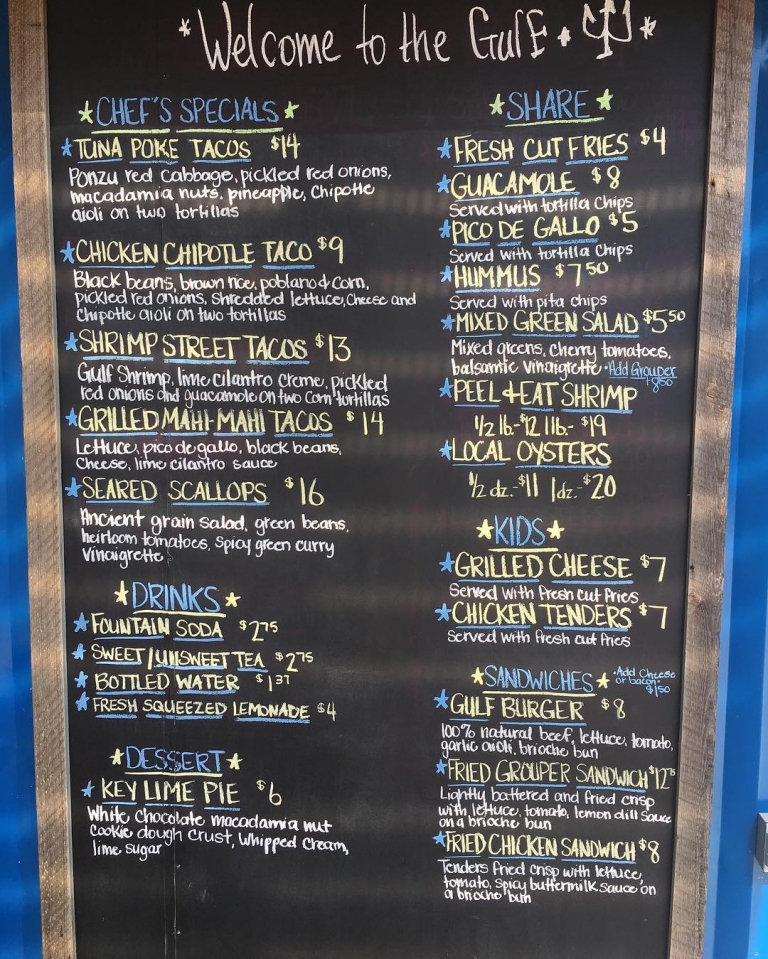 *Welcome to the Gulf.*
CHEF'S SPECIALS
TUNA POKE TACOS $14
Ponzu red cabbage, pickled red onions,
macadamia nuts, pineapple, Chipotle
aioli on two tortillas
CHICKEN CHIPOTLE TACO $9
Black beans, brown rice, poblano & corn,
pickled red onions, shredded lettuce, cheese and
Chipotle aioli on two tortillas
SHRIMP STREET TACOS $13
Gulf Shrimp, lime cilantro creme, pickled
red onions and guacamole on two Corn tortillas
GRILLED MAHI-MAHI TACOS $14
Lettuce, pico de gallo, black beans,
Cheese, lime cilantro sauce
SEARED SCALLOPS $16
Ancient grain salad, green beans,
heirloom tomatoes, spicy green curry
Vinaigrette
DRINKS
FOUNTAIN SODA $2.75
SWEET/UNSWEET TEA $2.75
BOTTLED WATER $1.37
FRESH SQUEEZED LEMONADE $4
DESSERT
KEY LIME PIE $6
White chocolate macadamia nut
cookie dough crust, whipped cream,
lime sugar
SHARE
FRESH CUT FRIES $4
GUACAMOLE $8
Served with tortilla chips
PICO DE GALLO $5
Served with tortilla chips
HUMMUS $7.50
Served with pita chips
MIXED GREEN SALAD $5.50
Mixed greens, cherry tomatoes,
balsamic vinaigrette · Add Grouper
+8.50
PEEL + EAT SHRIMP
1/2 lb.-$12 1 lb.-$19
LOCAL OYSTERS
1/2 dz.-$11 1 dz.-$20
KIDS
GRILLED CHEESE $7
Served with fresh cut fries
CHICKEN TENDERS $7
Served with fresh cut fries
SANDWICHES
·Add Cheese
or bacon·
$1.50
GULF BURGER $8
100% natural beef, lettuce, tomato,
garlic aioli, brioche bun
FRIED GROUPER SANDWICH $12.75
Lightly battered and fried crisp
with lettuce, tomato, lemon dill sauce
on a brioche bun
FRIED CHICKEN SANDWICH $8
Tenders fried crisp with lettuce,
tomato, spicy buttermilk sauce on
a brioche bun